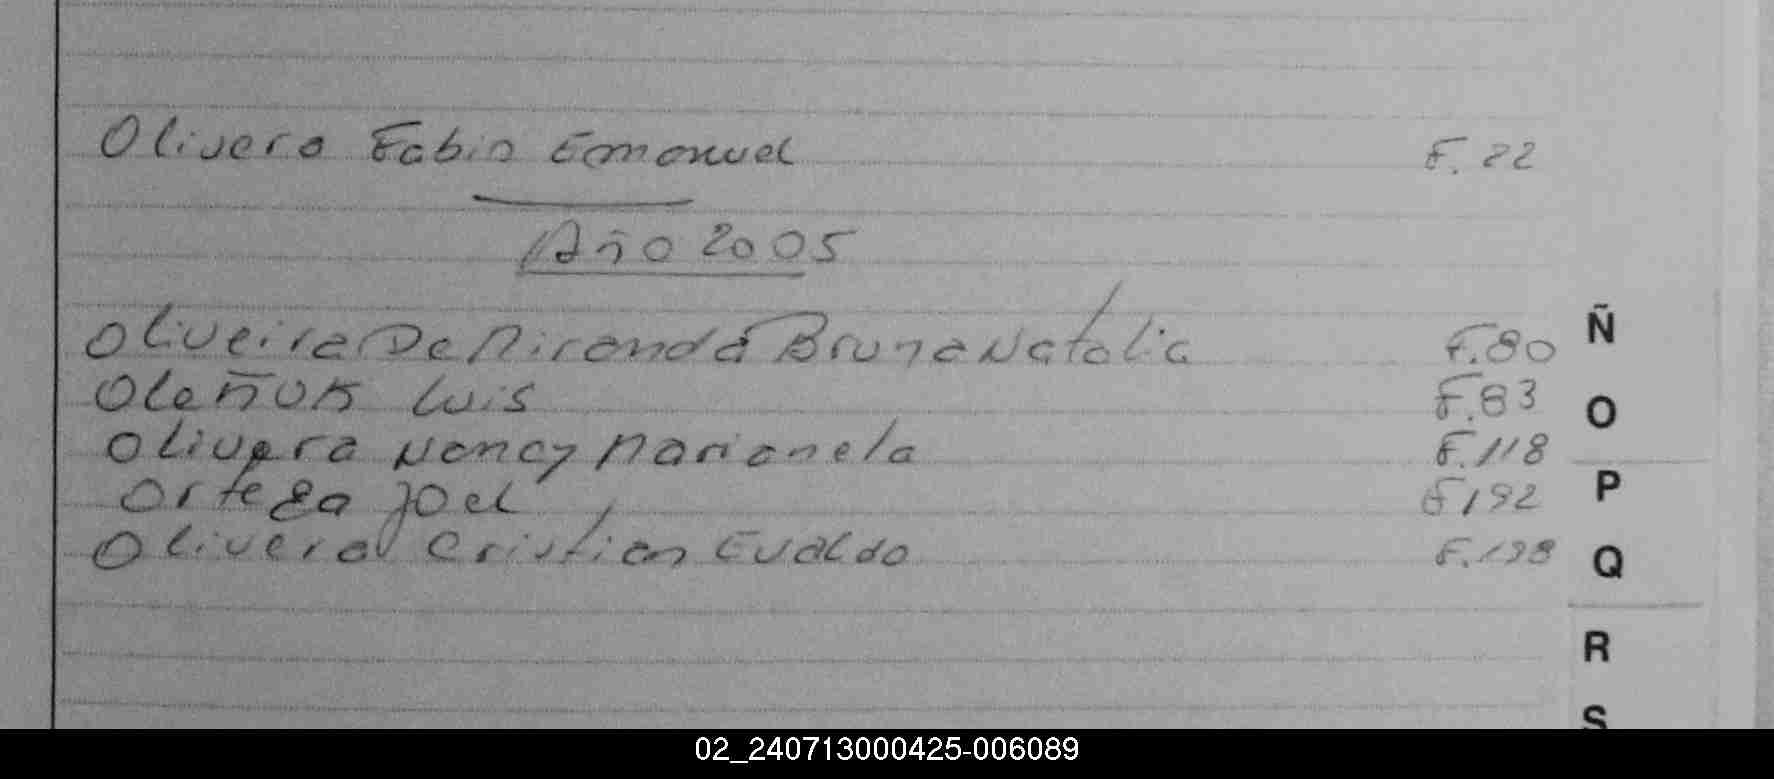 Olivera Fabio Emanuel F. 22
Año 2005
Oliveira De Miranda Bruna Natalia F. 80
Oleñuk Luis F. 83
Olivera Nancy Marianela F. 118
Ortega Joel F 192
Olivera Cristian Evaldo F. 198
Ñ
O
P
Q
R
S
02_240713000425-006089